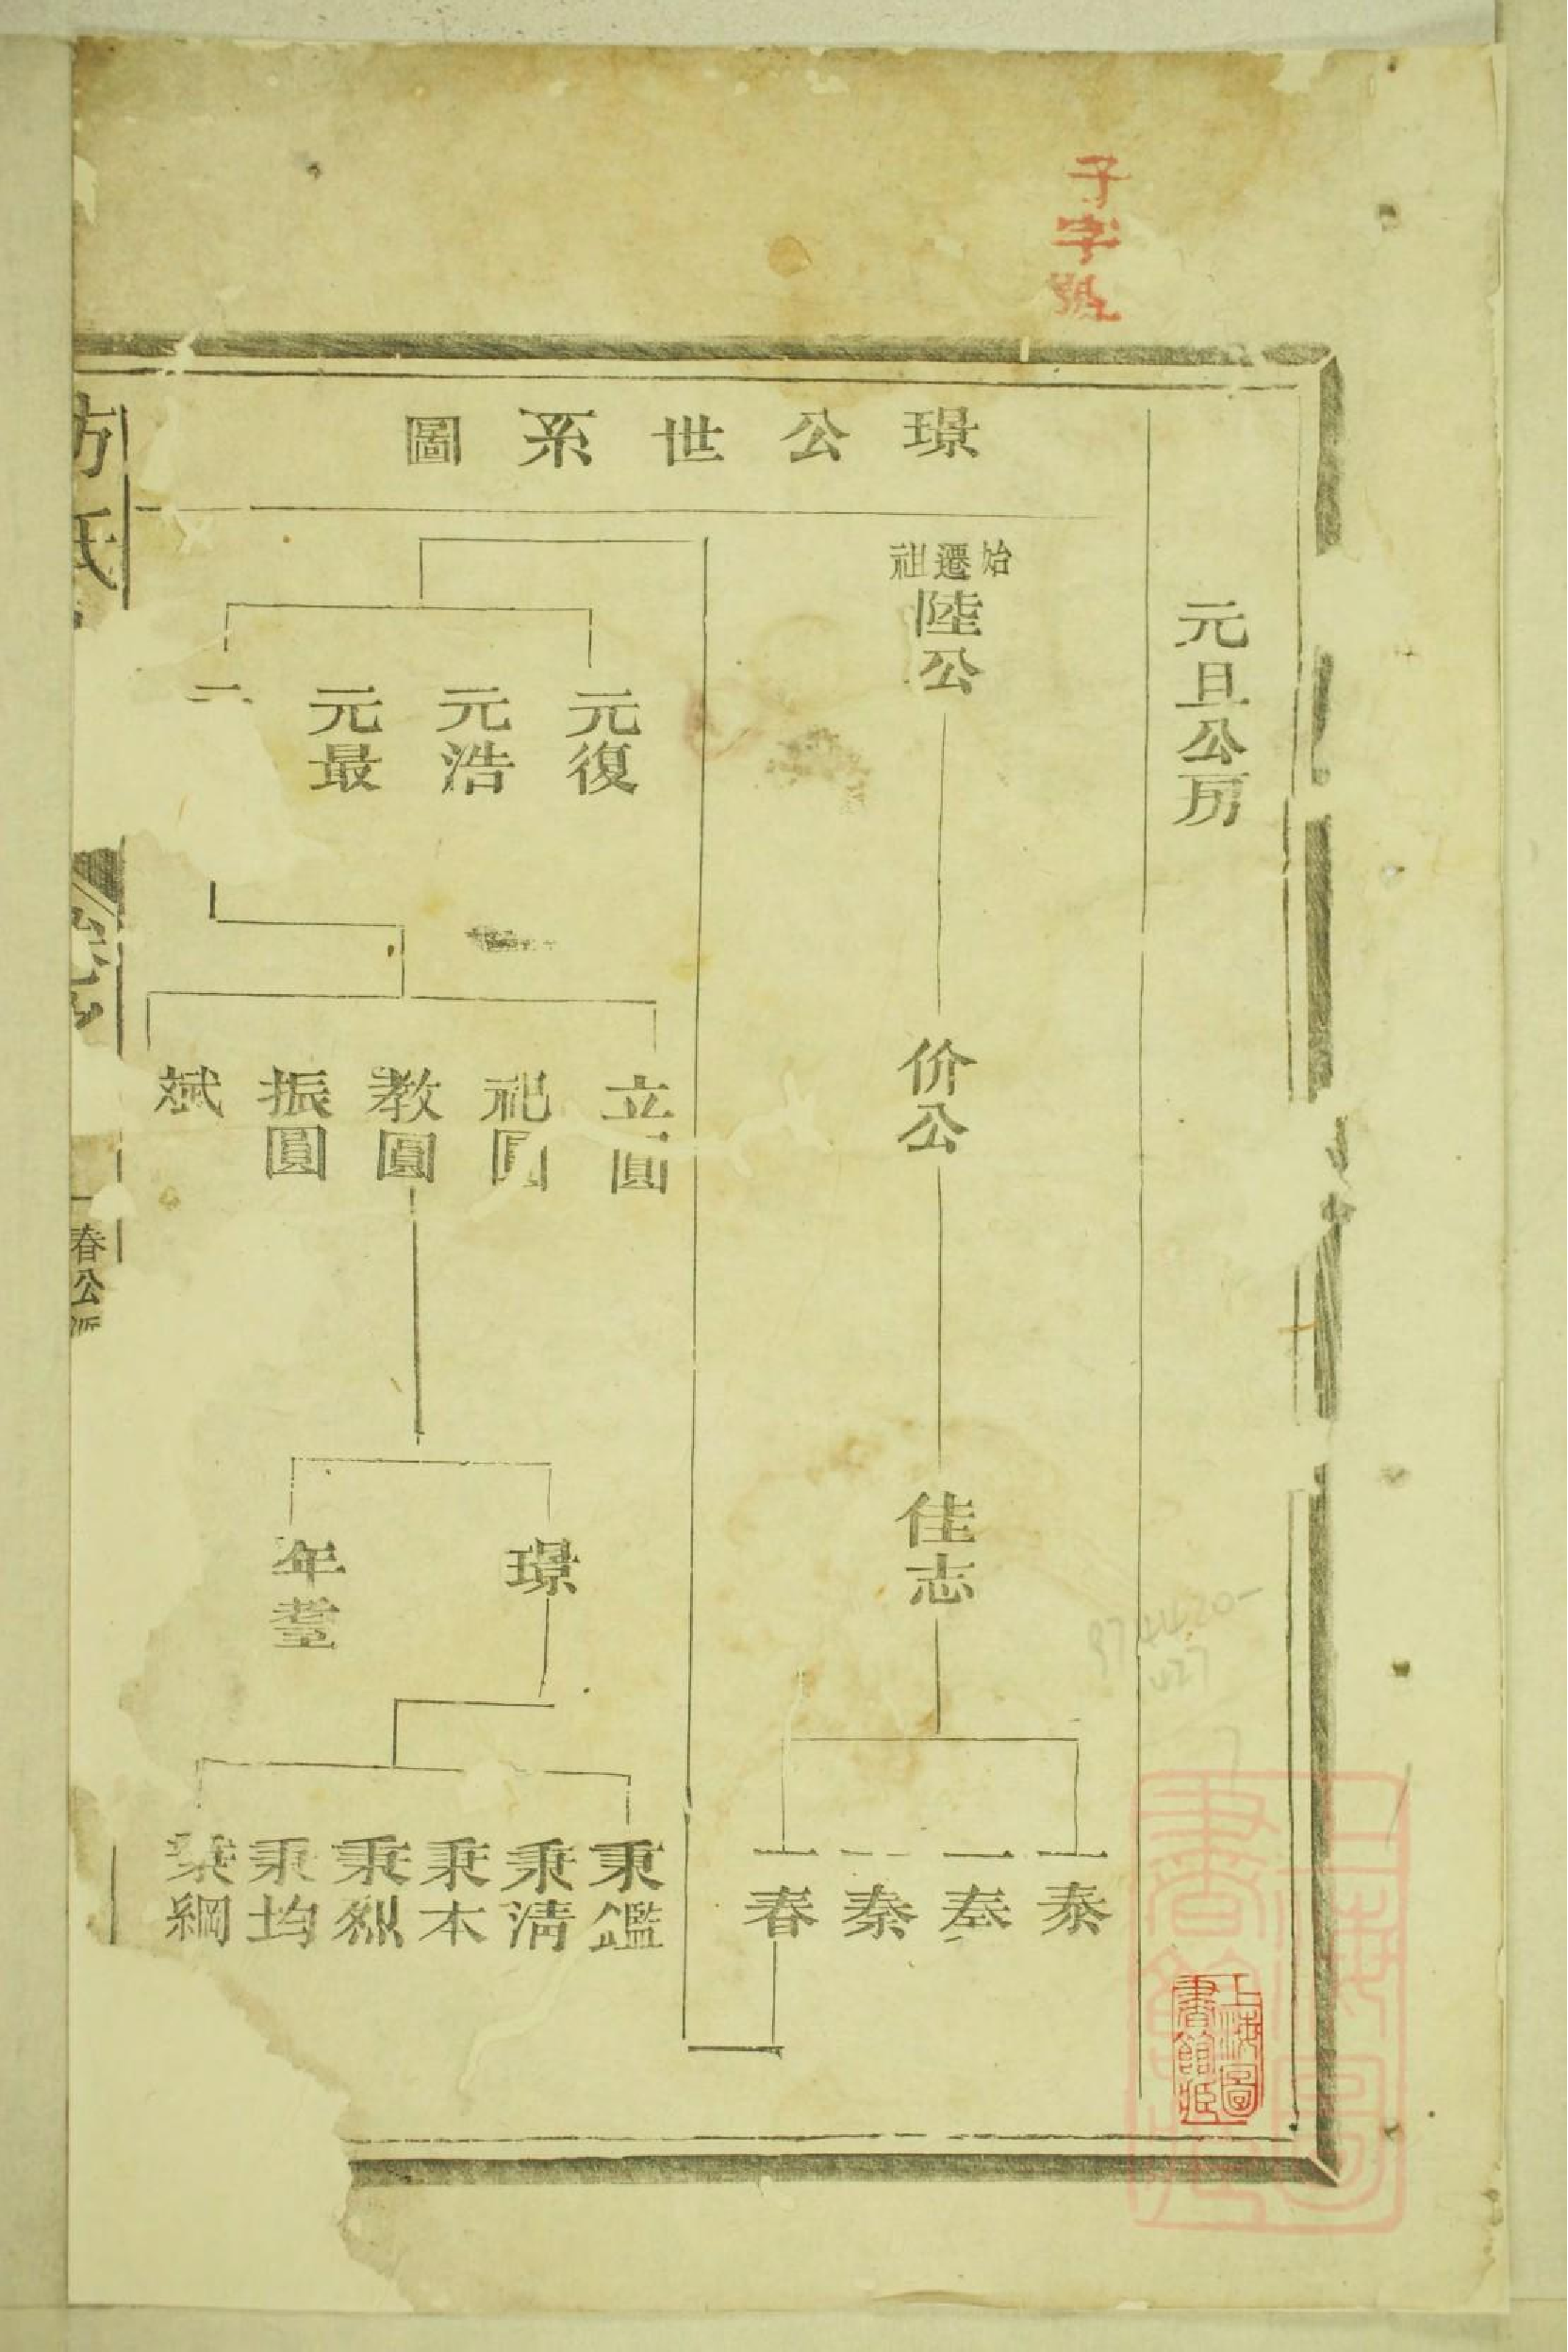 子字號
元旦公房
璟公世系圖
始遷祖
陸公
价公
佳志
一泰
一奏
一秦
一春
元復
元浩
元最
立圓
祀圓
教圓
振圓
斌
璟
年
秉鑑
秉清
秉本
秉烈
秉均
秉綱
方氏
一春公派
上海圖書館藏
上海圖書館藏